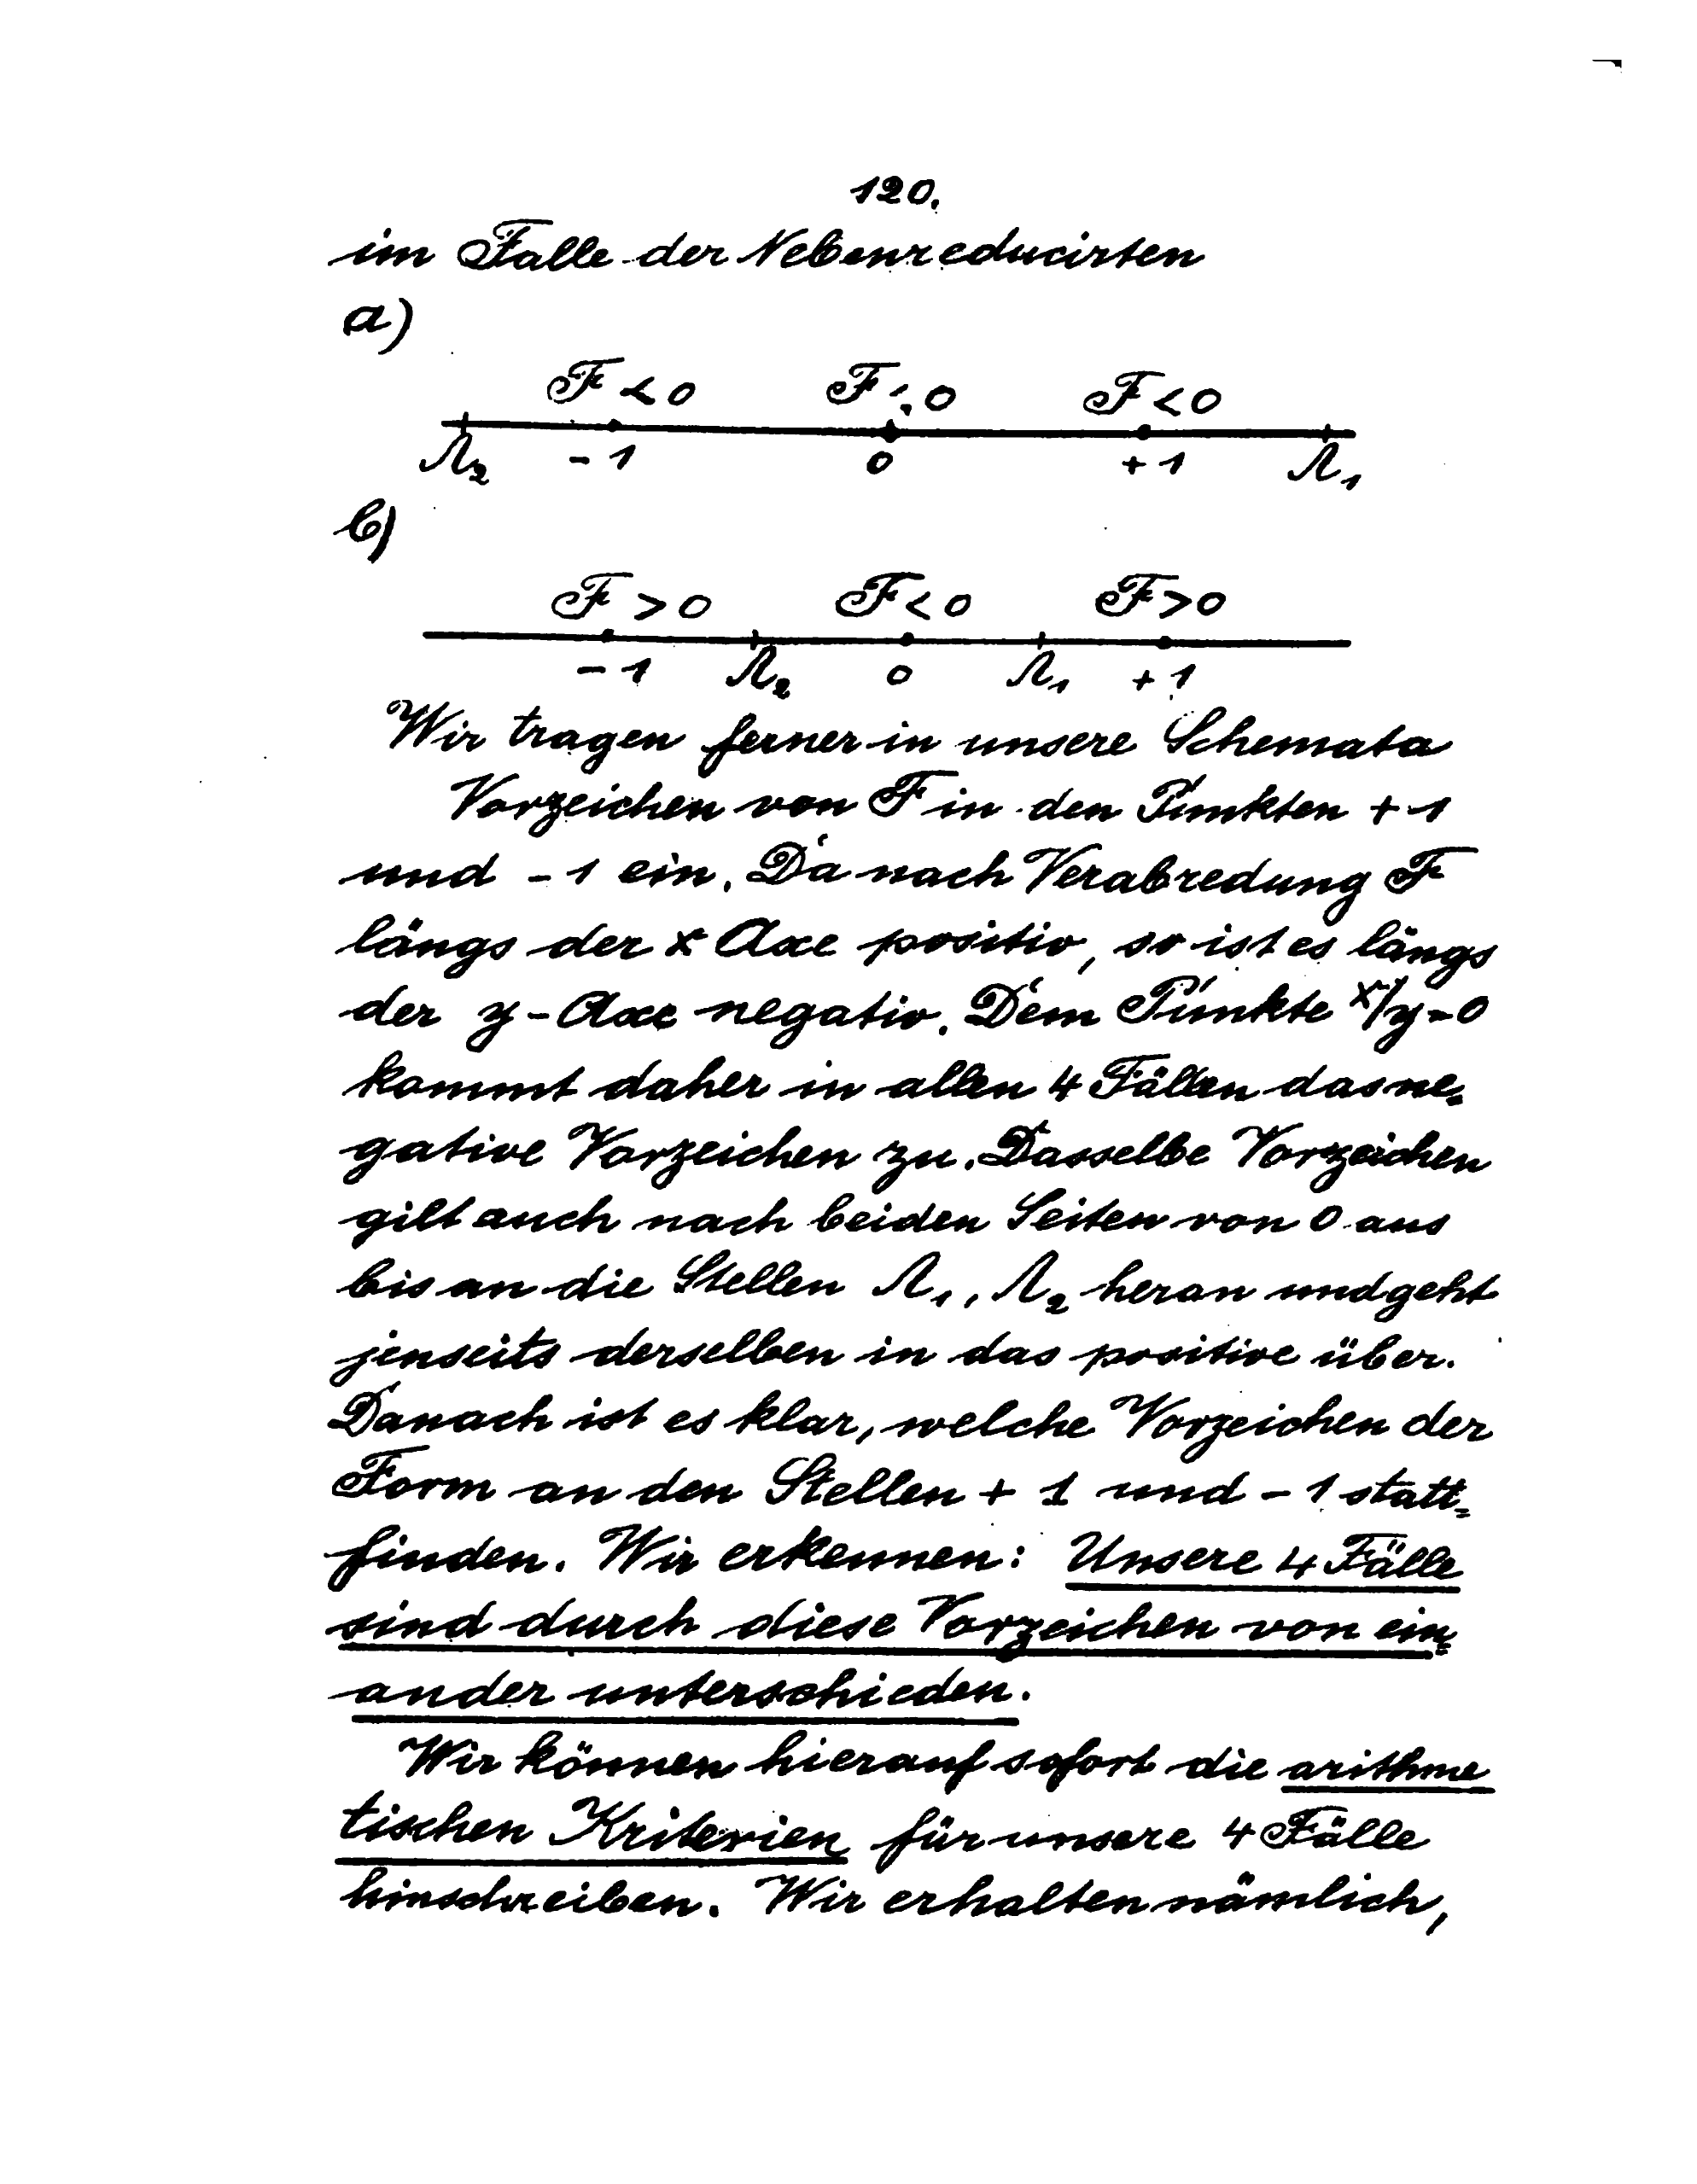 120.
im Falle der Nebenreducirten
a)
F < 0 F < 0 F < 0
Λ₂ - 1 0 + 1 Λ₁
b)
F > 0 F < 0 F > 0
- 1 Λ₂ 0 Λ₁ + 1
Wir tragen ferner in unsere Schemata
Vorzeichen von F in den Punkten + 1
und - 1 ein. Da nach Verabredung F
längs der x Axe positiv, so ist es längs
der y - Axe negativ. Dem Punkte x/y = 0
kommt daher in allen 4 Fällen das ne=
gative Vorzeichen zu. Dasselbe Vorzeichen
gilt auch nach beiden Seiten von 0 aus
bis an die Stellen Λ₁, Λ₂ heran und geht
jenseits derselben in das positive über.
Danach ist es klar, welche Vorzeichen der
Form an den Stellen + 1 und - 1 statt=
finden. Wir erkennen: Unsere 4 Fälle
sind durch diese Vorzeichen von ein=
ander unterschieden.
Wir können hierauf sofort die arithme
tischen Kriterien für unsere 4 Fälle
hinschreiben. Wir erhalten nämlich,